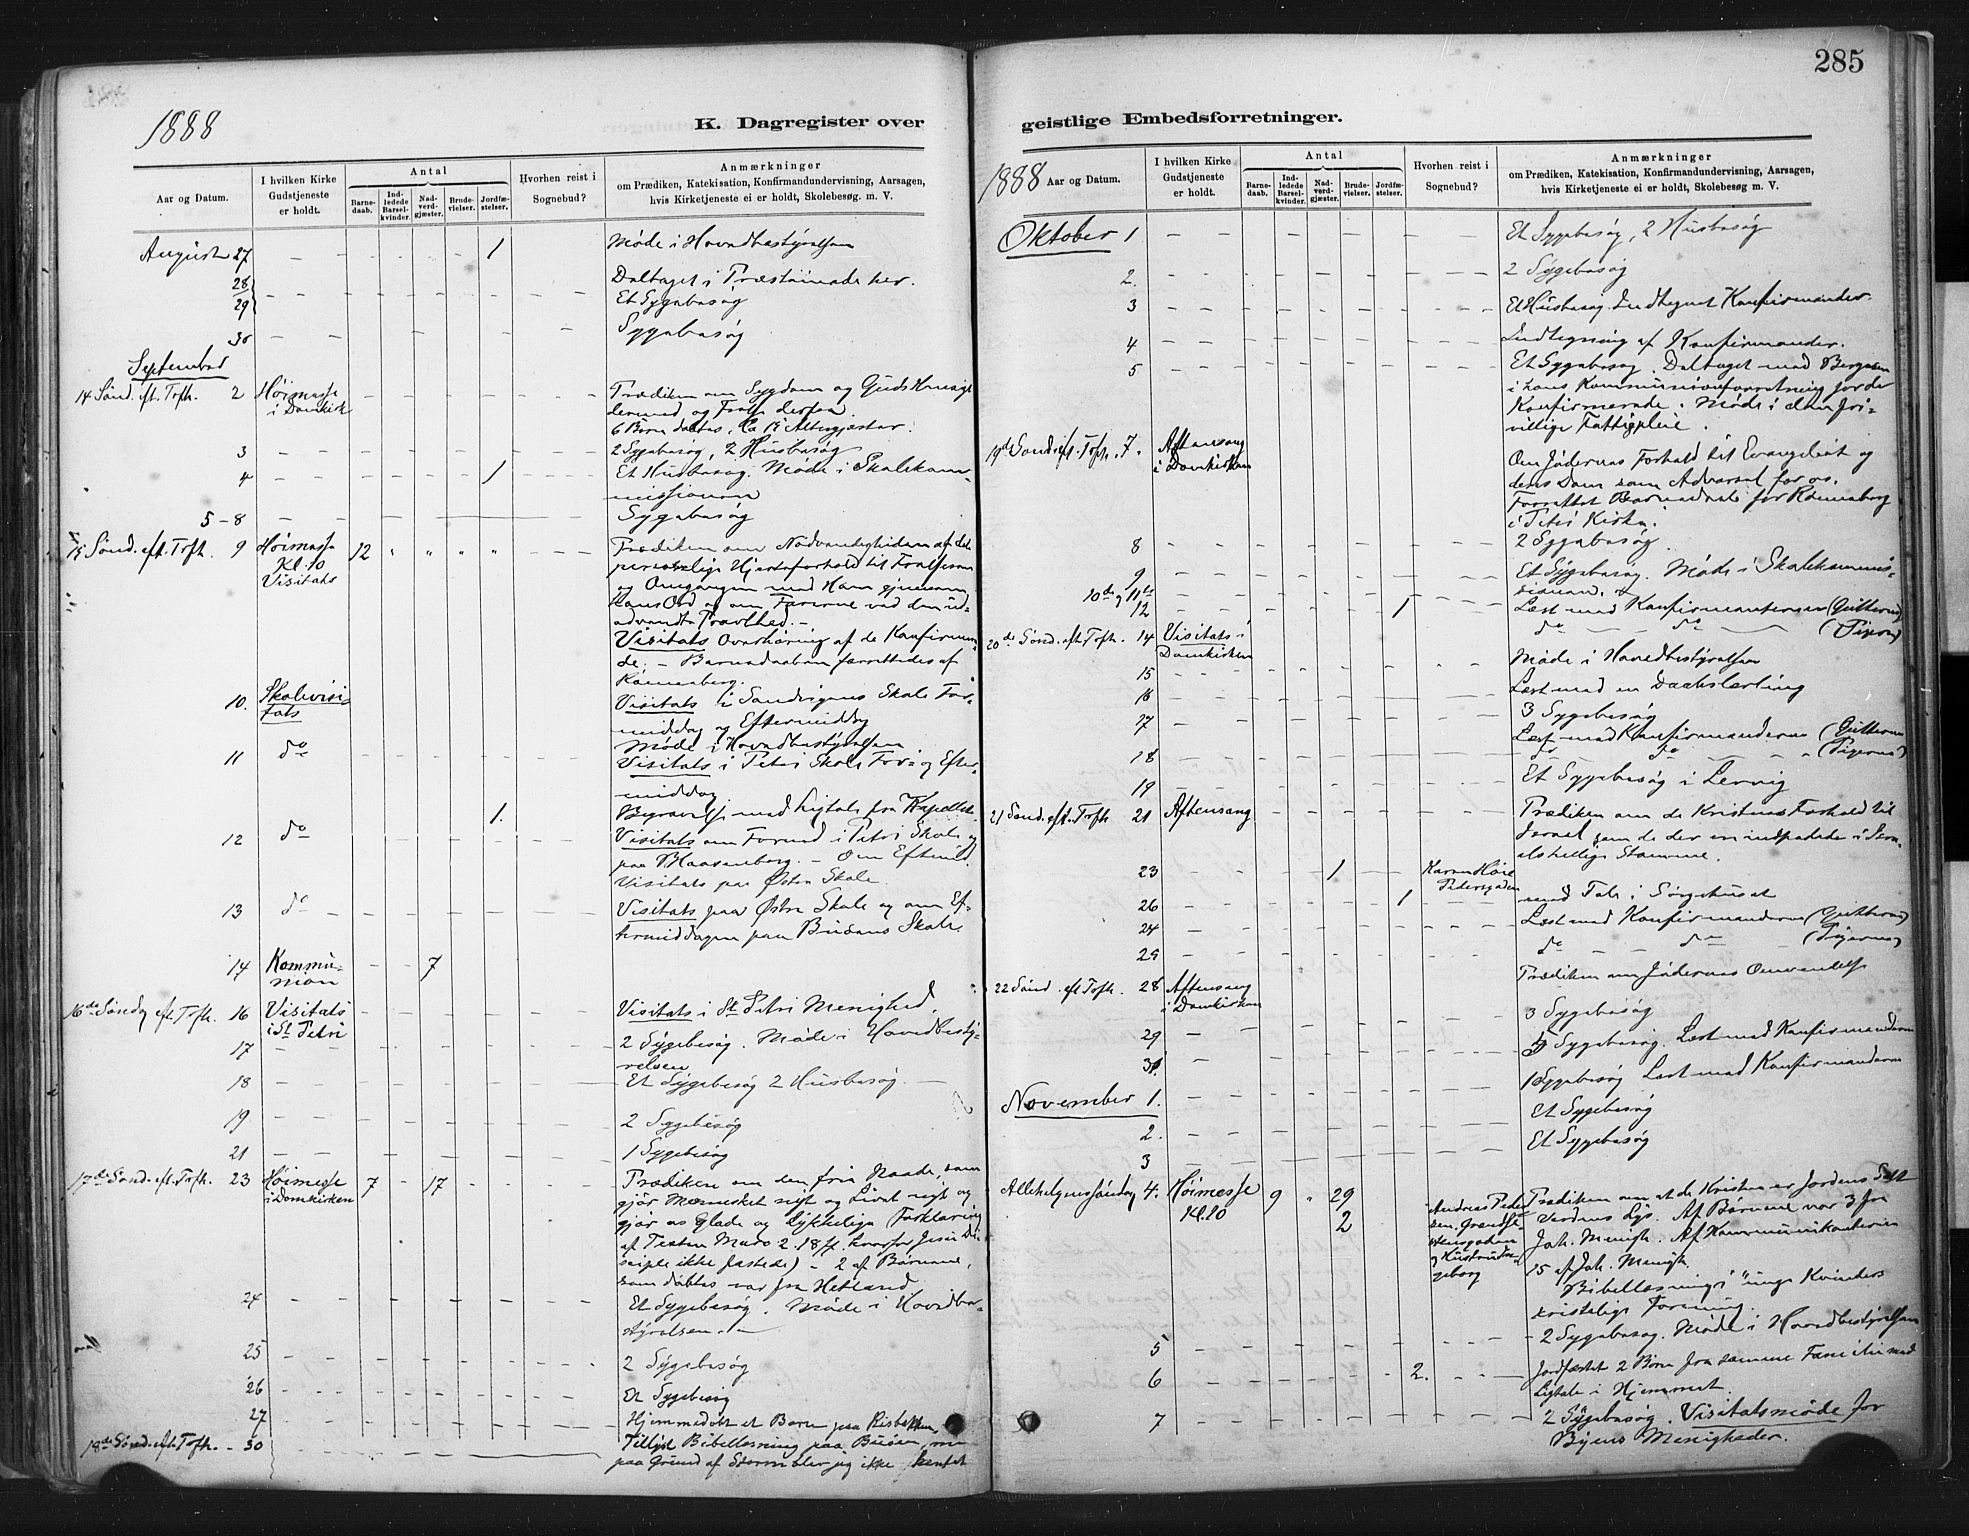 285
1888
K. Dagregister over
Aar og Datum.
I hvilken Kirke Gudstjeneste er holdt.
Antal
Barnedaab.
Indledede Barselkvinder.
Nadverdgjæster.
Brudevielser.
Jordfæstelser.
Hvorhen reist i Sognebud?
Anmærkninger
om Prædiken, Katekisation, Konfirmandundervisning, Aarsagen,
hvis Kirketjeneste ei er holdt, Skolebesøg. m. V.
August 27 1 Møde i Hovedbestyrelsen
28 Deltaget i Præstemøde her.
29 Et Sygebesøg
30 Sygebesøg
September
14 Sønd. eft. Trefh. 2 Høimesse Prædiken om Sygdom og Guds Hensigt
i Domkirk dermed, og Frelse derfra.
6 Børn døbtes,
3 2 Sygebesøg, 2 Husbesøg
4 1 Et Husbesøg. Møde i Skolekom-
missionen
5-8 Sygebesøg
15 Sønd. eft. Trefh. 9 Høimesse 12 Prædiken om Nødvendigheden af det
Kl. 10 personlige Hjerteforhold til Frelseren
Visitats og Omgangen med Ham gjennem
Hans Ord og om Farerne ved den ud-
advendte Travlhed. -
Visitats Overhøring af de Konfirmere-
de. - Barnedaaben forrettedes af
Rønneberg.
10. Skolevisi- Visitats i Sandvigens Skole For-
tats middag og Eftermiddag
Møde i Hovedbestyrelsen
11 do Visitats i Petri Skole For- og Efter-
middag
1. Begravelse med Ligtale fra Kapellet
12 do Visitats om Formd i Petri Skole og
paa Blaasenborg. - Om Eftmid.
Visitats paa Østre Skole
13 do Visitats paa Østre Skole og om Ef-
termiddagen paa Buøens Skole.
14 Kommu- 7
nion
16de Søndag eft. Trefh. 16 Visitats Visitats i St Petri Menighed.
i St Petri
17 2 Sygebesøg. Møde i Hovedbesty-
relsen
18 Et Sygebesøg 2 Husbesøg.
19 2 Sygebesøg
21 1 Sygebesøg
17de Sønd. eft. Trefh. 23 Høimesse 7 - 17 Prædiken om den frie Naade, som
i Domkirken gjør Mennesket rigt og Livet rigt og
gjør os Glade og Lykkelige Forklaring
af Texten Marc 2. 18 ff. hvorfor Jesu Di-
sciple ikke fastede) - 2 af Børnene,
som døbtes var fra Hetland
24 Et Sygebesøg. Møde i Hovedbe-
styrelsen.
25 2 Sygebesøg
26 Et Sygebesøg
27 Hjemmedøbt et Barn paa
18de Sønd. eft. Trefh. - 30 Tillyst Bibellæsning paa Buøen, men
paa Grund af Storm blev jeg ikke hentet
geistlige Embedsforretninger.
1888 Aar og Datum.
I hvilken Kirke Gudstjeneste er holdt.
Antal
Barnedaab.
Indledede Barselkvinder.
Nadverdgjæster.
Brudevielser.
Jordfæstelser.
Hvorhen reist i Sognebud?
Anmærkninger
om Prædiken, Katekisation, Konfirmandundervisning, Aarsagen,
hvis Kirketjeneste ei er holdt, Skolebesøg m. V.
Oktober 1 Et Sygebesøg, 2 Husbesøg
2. 2 Sygebesøg
3 Et Husbesøg. Indtegnet Konfirmander.
4 Indtegning af Konfirmander.
5 Et Sygebesøg. Deltaget med Bergesen
i hans Kommunionforretning for de
Konfirmerede. Møde i den fri-
villige Fattigpleie.
19de Sønd. eft. Trefh. 7. Aftensang Om Jødernes Forhold til Evangeliet og
i Domkirken deres Dom som Advarsel for os.
Forrettet Barnedaab for Rønneberg
i Petri Kirke.
8 2 Sygebesøg.
9 Et Sygebesøg. Møde i Skolekommis-
sionen.
10de og 11te
12 1 Læst med Konfirmanterne (Gutterne)
do do (Pigerne)
20de Sønd. eft. Trefh. 14 Visitats i
Domkirken Møde i Hovedbestyrelsen
15 Læst med en Daabslærling
16 3 Sygebesøg
17 Læst med Konfirmanderne (Gutterne
18 do do (Pigerne)
19 Et Sygebesøg i Lervig
21 Sønd. eft. Trefh 21 Aftensang Prædiken om de Kristnes Forhold til
Israel som de der er indpodede i Isra-
els hellige Stamme.
23 1 Karen Høie
Pedersgaden
26 1 med Tale i Sørgehuset
24 Læst med Konfirmanderne (Gutterne)
25 do do (Pigerne)
22 Sønd. eft Trefh. 28 Aftensang Prædiken om Jødernes Omvendelse
i Domkirken
29 3 Sygebesøg
31. Sygebesøg. Læst med Konfirmanderne
November 1. 1 Sygebesøg Læst med Konfirmanderne
2. Et Sygebesøg
3 Et Sygebesøg
Allehelgenssøndag 4. Høimesse 9 " 29 Andreas Peder- Prædiken om at de Kristne er Jordens Salt
Kl. 10 2 sen Verdens Lys. Af Børnene var 3 fra
Joh. Menigh. Af Kommunikanterne
15 af Joh. Menigh.
Bibellæsning i "unge Kvinders
kristelige Forening.
5 2 Sygebesøg. Møde i Hovedbestyrelsen
6 2. Jordfæstet 2 Børn fra samme Familie med
Ligtale i Hjemmet.
7 2 Sygebesøg. Visitatsmøde for
Byens Menigheder.